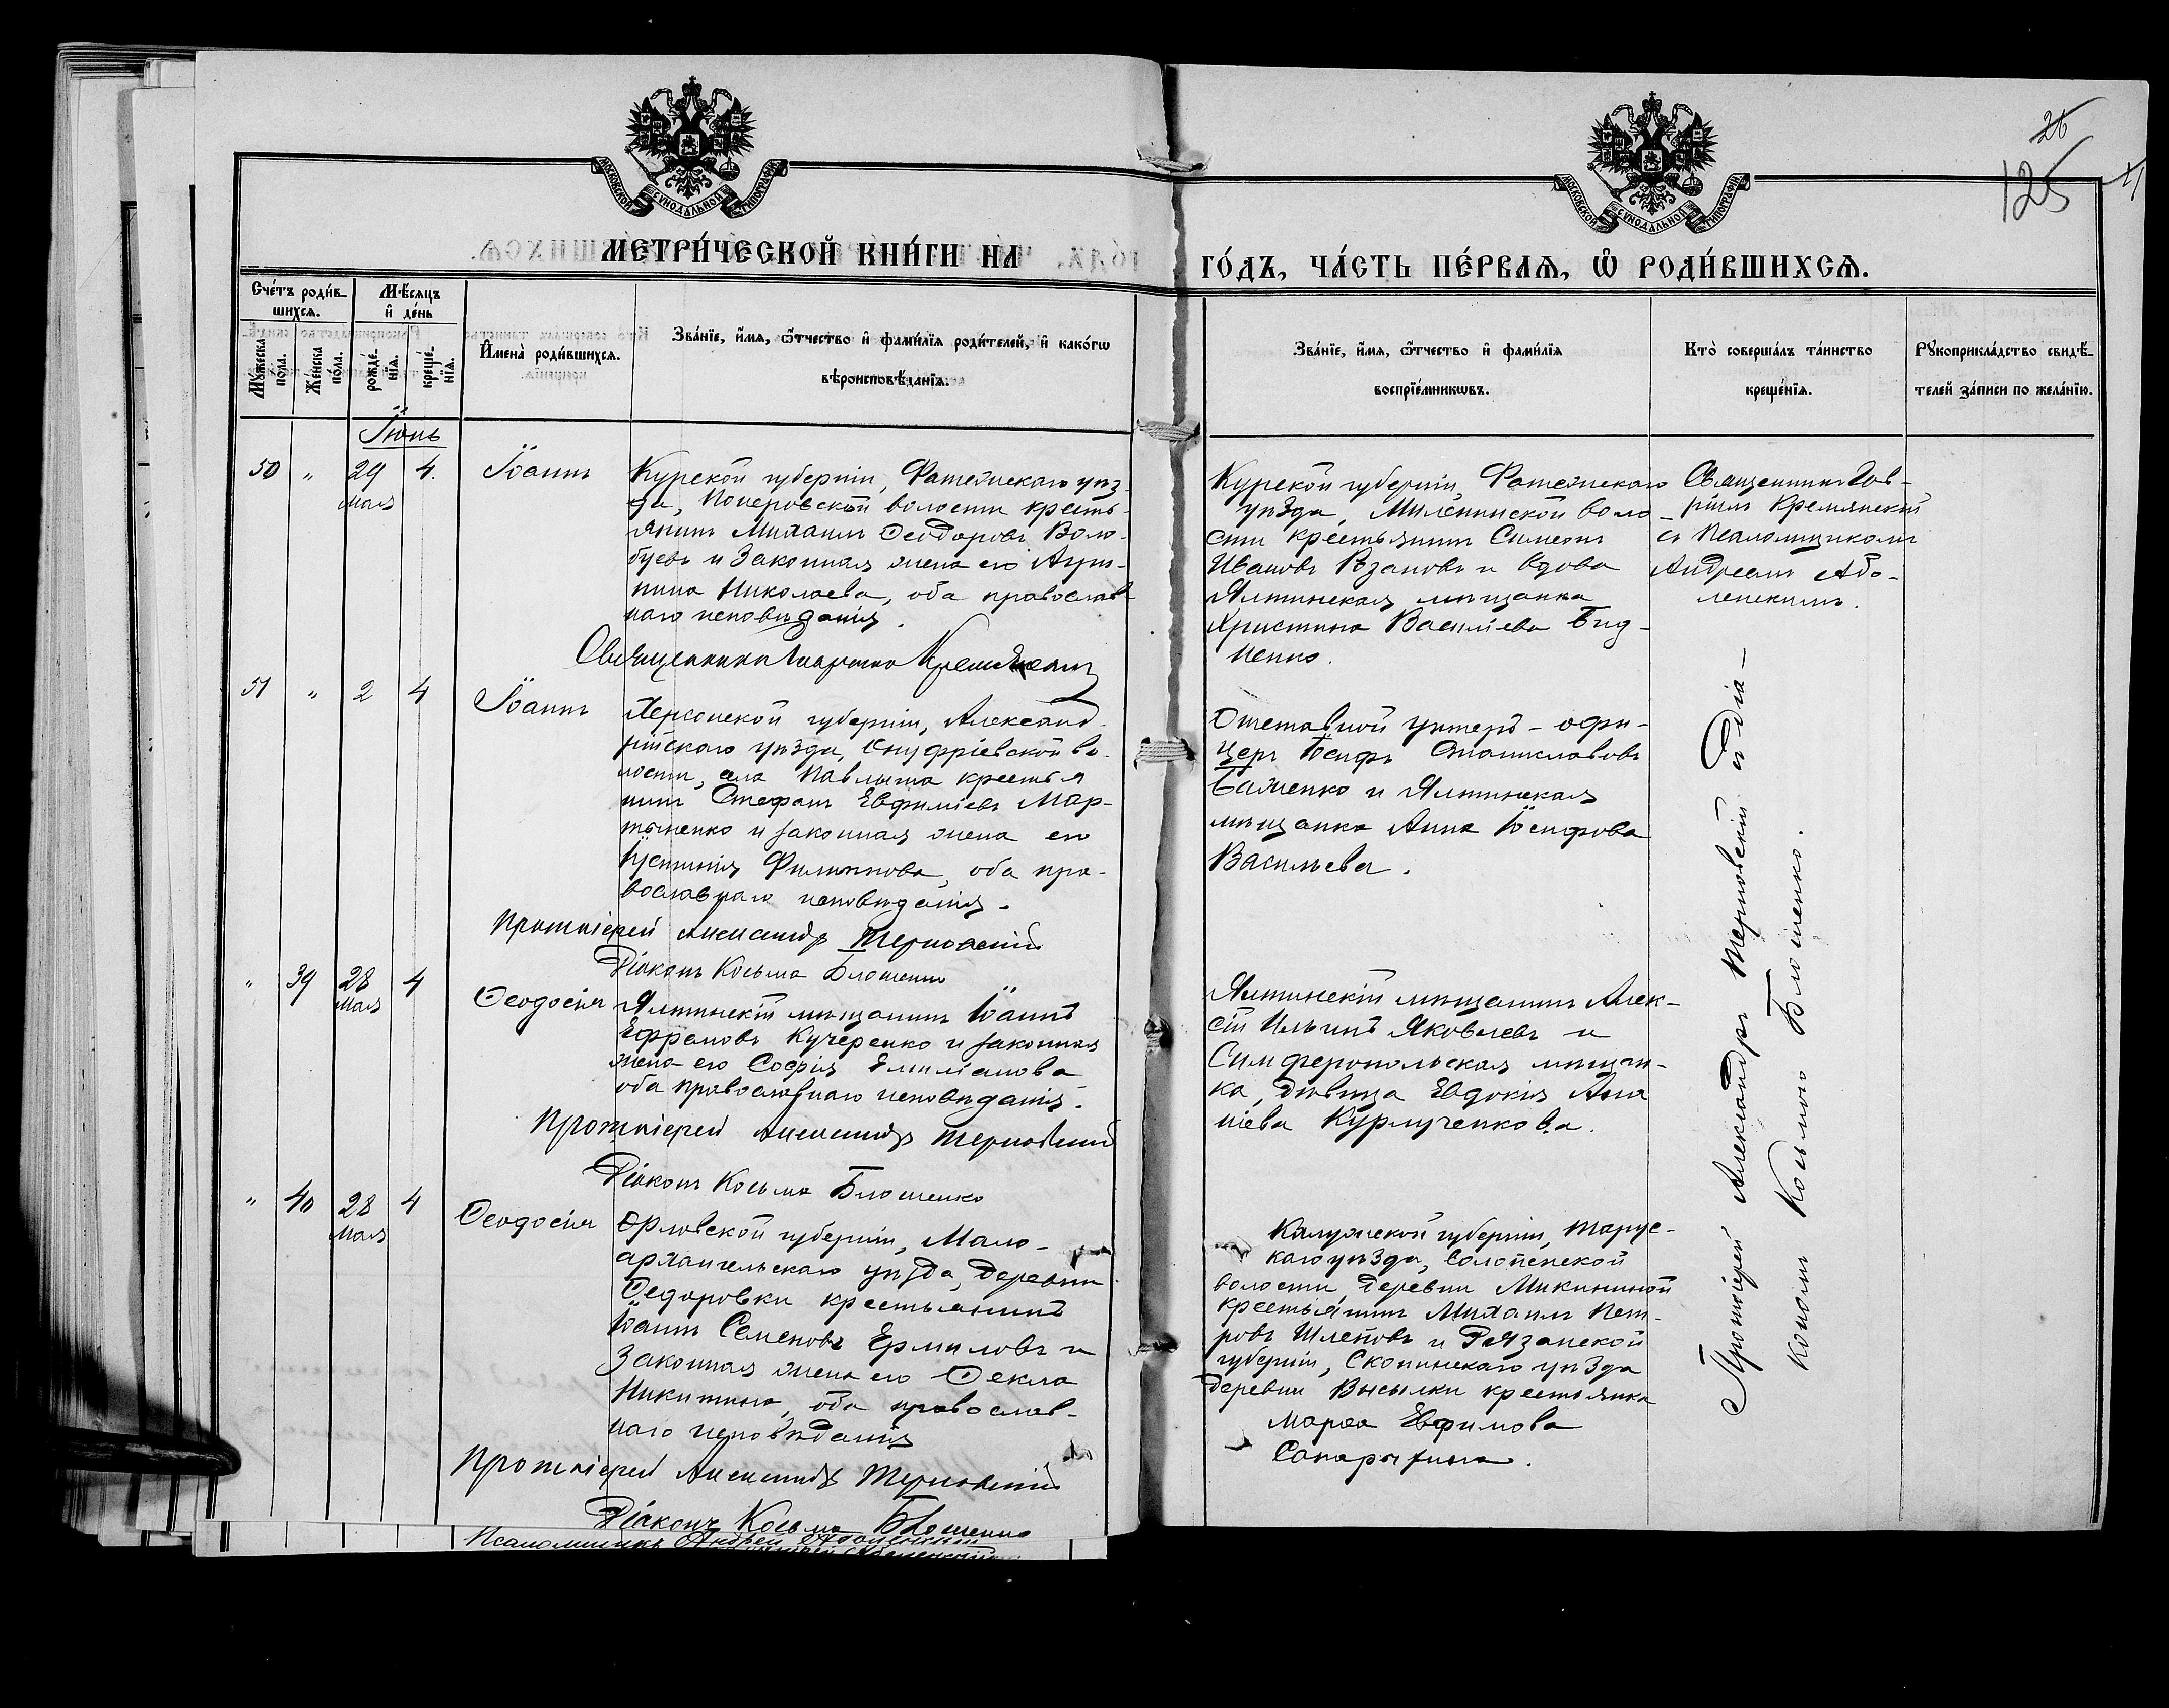 26
125
МОСКОВСКОЙ СѴНОДАЛЬНОЙ ТИПОГРАФІИ
МОСКОВСКОЙ СѴНОДАЛЬНОЙ ТИПОГРАФІИ
МЕТРИ́ЧЕСКОЙ КНИ́ГИ НА
ГО́ДЪ, ЧА́СТЬ ПЕ́РВАѦ, Ѽ РОДИ́ВШИХСѦ.
Сче́тъ роди́в-
шихсѧ.
Мꙋжеска
по́ла.
Же́нска
по́ла.
Мѣ́сѧцъ
и҆ де́нь
рожде́-
нїѧ.
креще́-
нїѧ.
И҆мена̀ роди́вшихсѧ.
Зва́нїе, и҆́мѧ, ѻ҆́тчество и҆ фами́лїѧ роди́телей, и҆ како́гѡ
вѣроисповѣ́данїѧ.
Зва́нїе, и҆́мѧ, ѻ҆́тчество и҆ фами́лїѧ
воспрїе́мникѡвъ.
Кто̀ соверша́лъ та́инство
креще́нїѧ.
Рꙋкоприкла́дство свидѣ́-
телей за́писи по жела́нїю.
Іюнь
50 " 29 4. Іоаннъ
Мая
Курской губерніи, Фатежскаго уѣз-
да, Нонеровской волости кресть-
янинъ Михаилъ Ѳеодоровъ Воло-
буевъ и законная жена его Агрип-
пина Николаева, оба православ-
наго исповѣданія.
Священникъ Гавріилъ Кремянскій
Курской губерніи, Фатежскаго
уѣзда, Миленинской воло-
сти крестьянинъ Симеонъ
Ивановъ Рзановъ и вдова
Ялтинская мѣщанка
Христина Василіева Бид-
ненко.
Священникъ Гав-
ріилъ Кремянскій
съ псаломщикомъ
Андреемъ Або-
ленскимъ.
51 " 2 4 Іоаннъ
Херсонской губерніи, Александ-
рійскаго уѣзда, Онуфріевской во-
лости, села Павлыша крестья
нинъ Стефанъ Евфиміевъ Мар-
тыненко и законная жена его
Іустинія Филиппова, оба пра-
вославнаго исповѣданія.
Протоіерей Александръ Терновскій
Діаконъ Косьма Блошенко
Отставной унтеръ-офи-
церъ Іосифъ Станиславовъ
Баженко и Ялтинская
мѣщанка Анна Іосифова
Васильева.
" 39 28 4 Ѳеодосія
Мая
Ялтинскій мѣщанинъ Іоаннъ
Ефремовъ Кучеренко и законная
жена его Софія Емиліанова
оба православнаго исповѣданія.
Протоіерей Александръ Терновскій
Діаконъ Косьма Блошенко
Ялтинскій мѣщанинъ Алек-
сій Ильинъ Яковлевъ и
Симферопольская мѣщан-
ка, дѣвица Евдокія Ана
ніева Курлученкова.
" 40 28 4 Ѳеодосія
Мая
Орловской губерніи, Мало-
архангельскаго уѣзда, деревни
Ѳедоровки крестьянинъ
Іоаннъ Семеновъ Ермиловъ и
законная жена его Ѳекла
Никитина, оба православ-
наго исповѣданія
Протоіерей Александръ Терновскій
Діаконъ Косьма Блошенко
Псаломщикъ Андрей Аболенскій
Калужской губерніи, Тарус-
каго уѣзда, Солопенской
волости, деревни Микининой
крестьянинъ Михаилъ Пет-
ровъ Шлеповъ и Рязанской
губерніи, Скопинскаго уѣзда
деревни Высылки крестьянка
Марѳа Евфимова
Протоіерей Александръ Терновскій и діа-
кономъ Косьмою Блошенко.